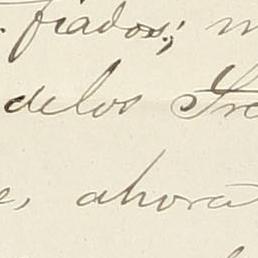 fiados; 
delos
ahora